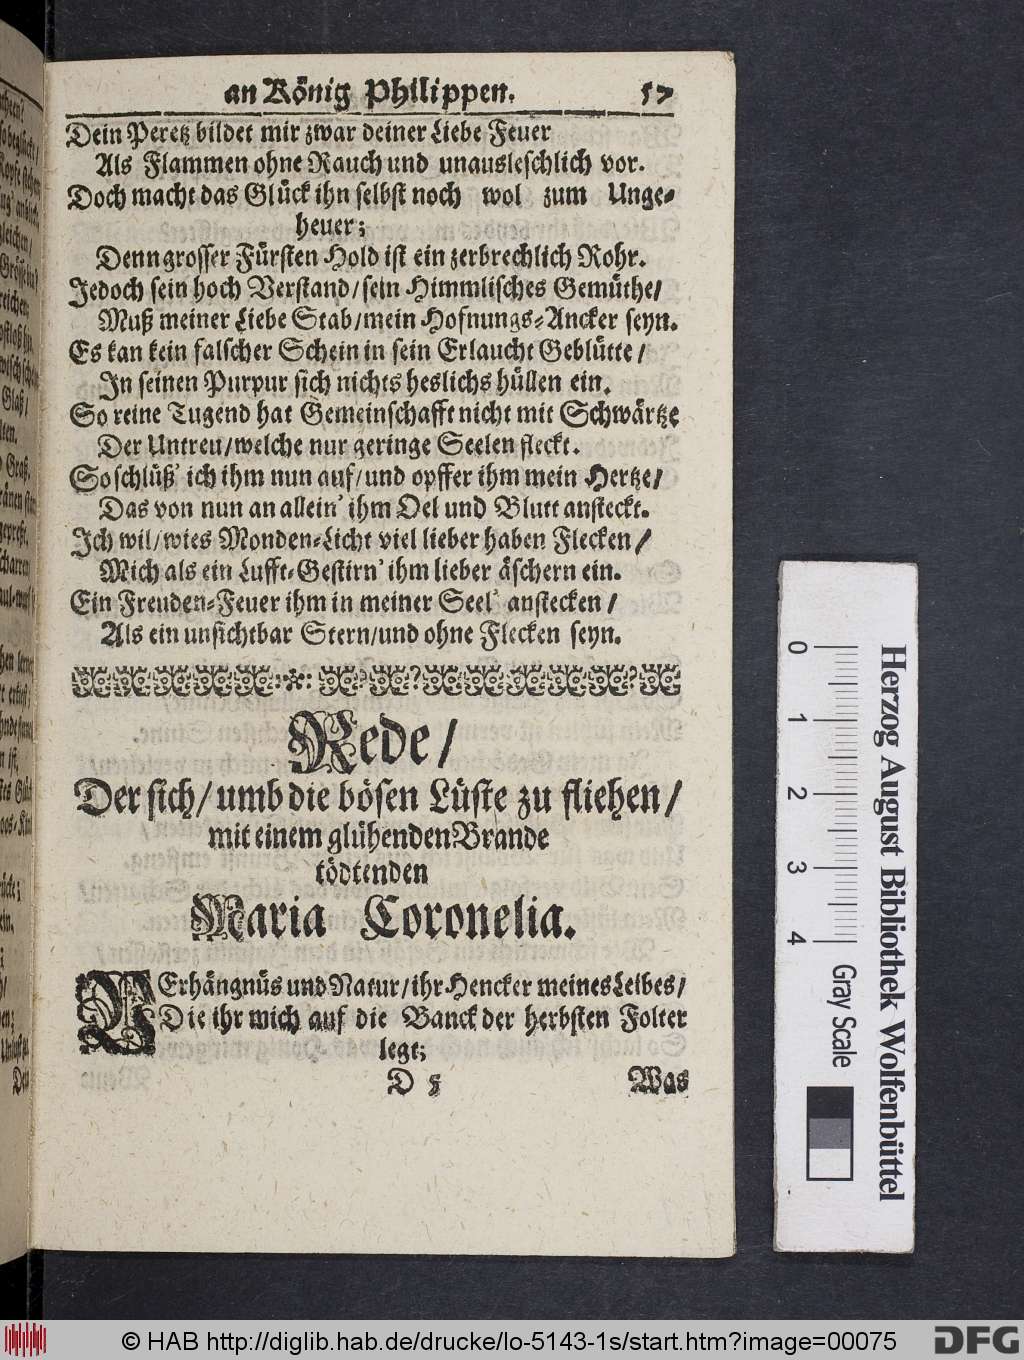 an König Philippen. 57
Dein Peretz bildet mir zwar deiner Liebe Feuer
Als Flammen ohne Rauch und unausleschlich vor.
Doch macht das Glück ihn selbst noch wol zum Unge-
heuer;
Denn grosser Fürsten Hold ist ein zerbrechlich Rohr.
Jedoch sein hoch Verstand/sein Himmlisches Gemüthe/
Muß meiner Liebe Stab/mein Hofnungs-Ancker seyn.
Es kan kein falscher Schein in sein Erlaucht Geblütte/
In seinen Purpur sich nichts heslichs hüllen ein.
So reine Tugend hat Gemeinschafft nicht mit Schwärtze
Der Untreu/welche nur geringe Seelen fleckt.
So schlüß' ich ihm nun auf/und opffer ihm mein Hertze/
Das von nun an allein' ihm Oel und Blutt ansteckt.
Ich wil/wies Monden-Licht viel lieber haben Flecken/
Mich als ein Lufft-Gestirn' ihm lieber äschern ein.
Ein Freuden-Feuer ihm in meiner Seel' anstecken/
Als ein unsichtbar Stern/und ohne Flecken seyn.
Rede/
Der sich/umb die bösen Lüste zu fliehen/
mit einem glühenden Brande
tödtenden
Maria Coronelia.
VErhängnüs und Natur/ihr Hencker meines Leibes/
Die ihr mich auf die Banck der herbsten Folter
legt;
D 5 Was
0 1 2 3 4
Gray Scale
Herzog August Bibliothek Wolfenbüttel
© HAB http://diglib.hab.de/drucke/lo-5143-1s/start.htm?image=00075
DFG